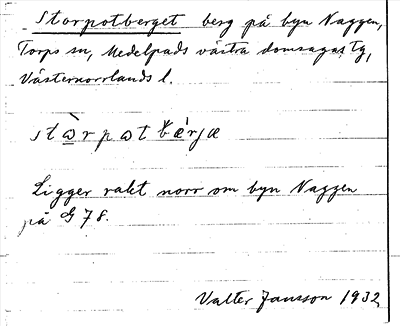 Storpotberget berg på byn Naggen,
Torps sn, Medelpads västra domsagas tg,
Västernorrlands l.
Ligger rakt norr om byn Naggen
på G 78.
Valter Jansson 1932